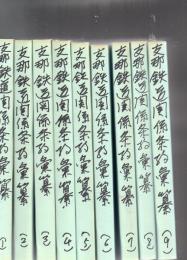 支那鉄道関係条約彙纂(1)
支那鉄道関係条約彙纂(2)
支那鉄道関係条約彙纂(3)
支那鉄道関係条約彙纂(4)
支那鉄道関係条約彙纂(5)
支那鉄道関係条約彙纂(6)
支那鉄道関係条約彙纂(7)
支那鉄道関係条約彙纂(8)
支那鉄道関係条約彙纂(9)